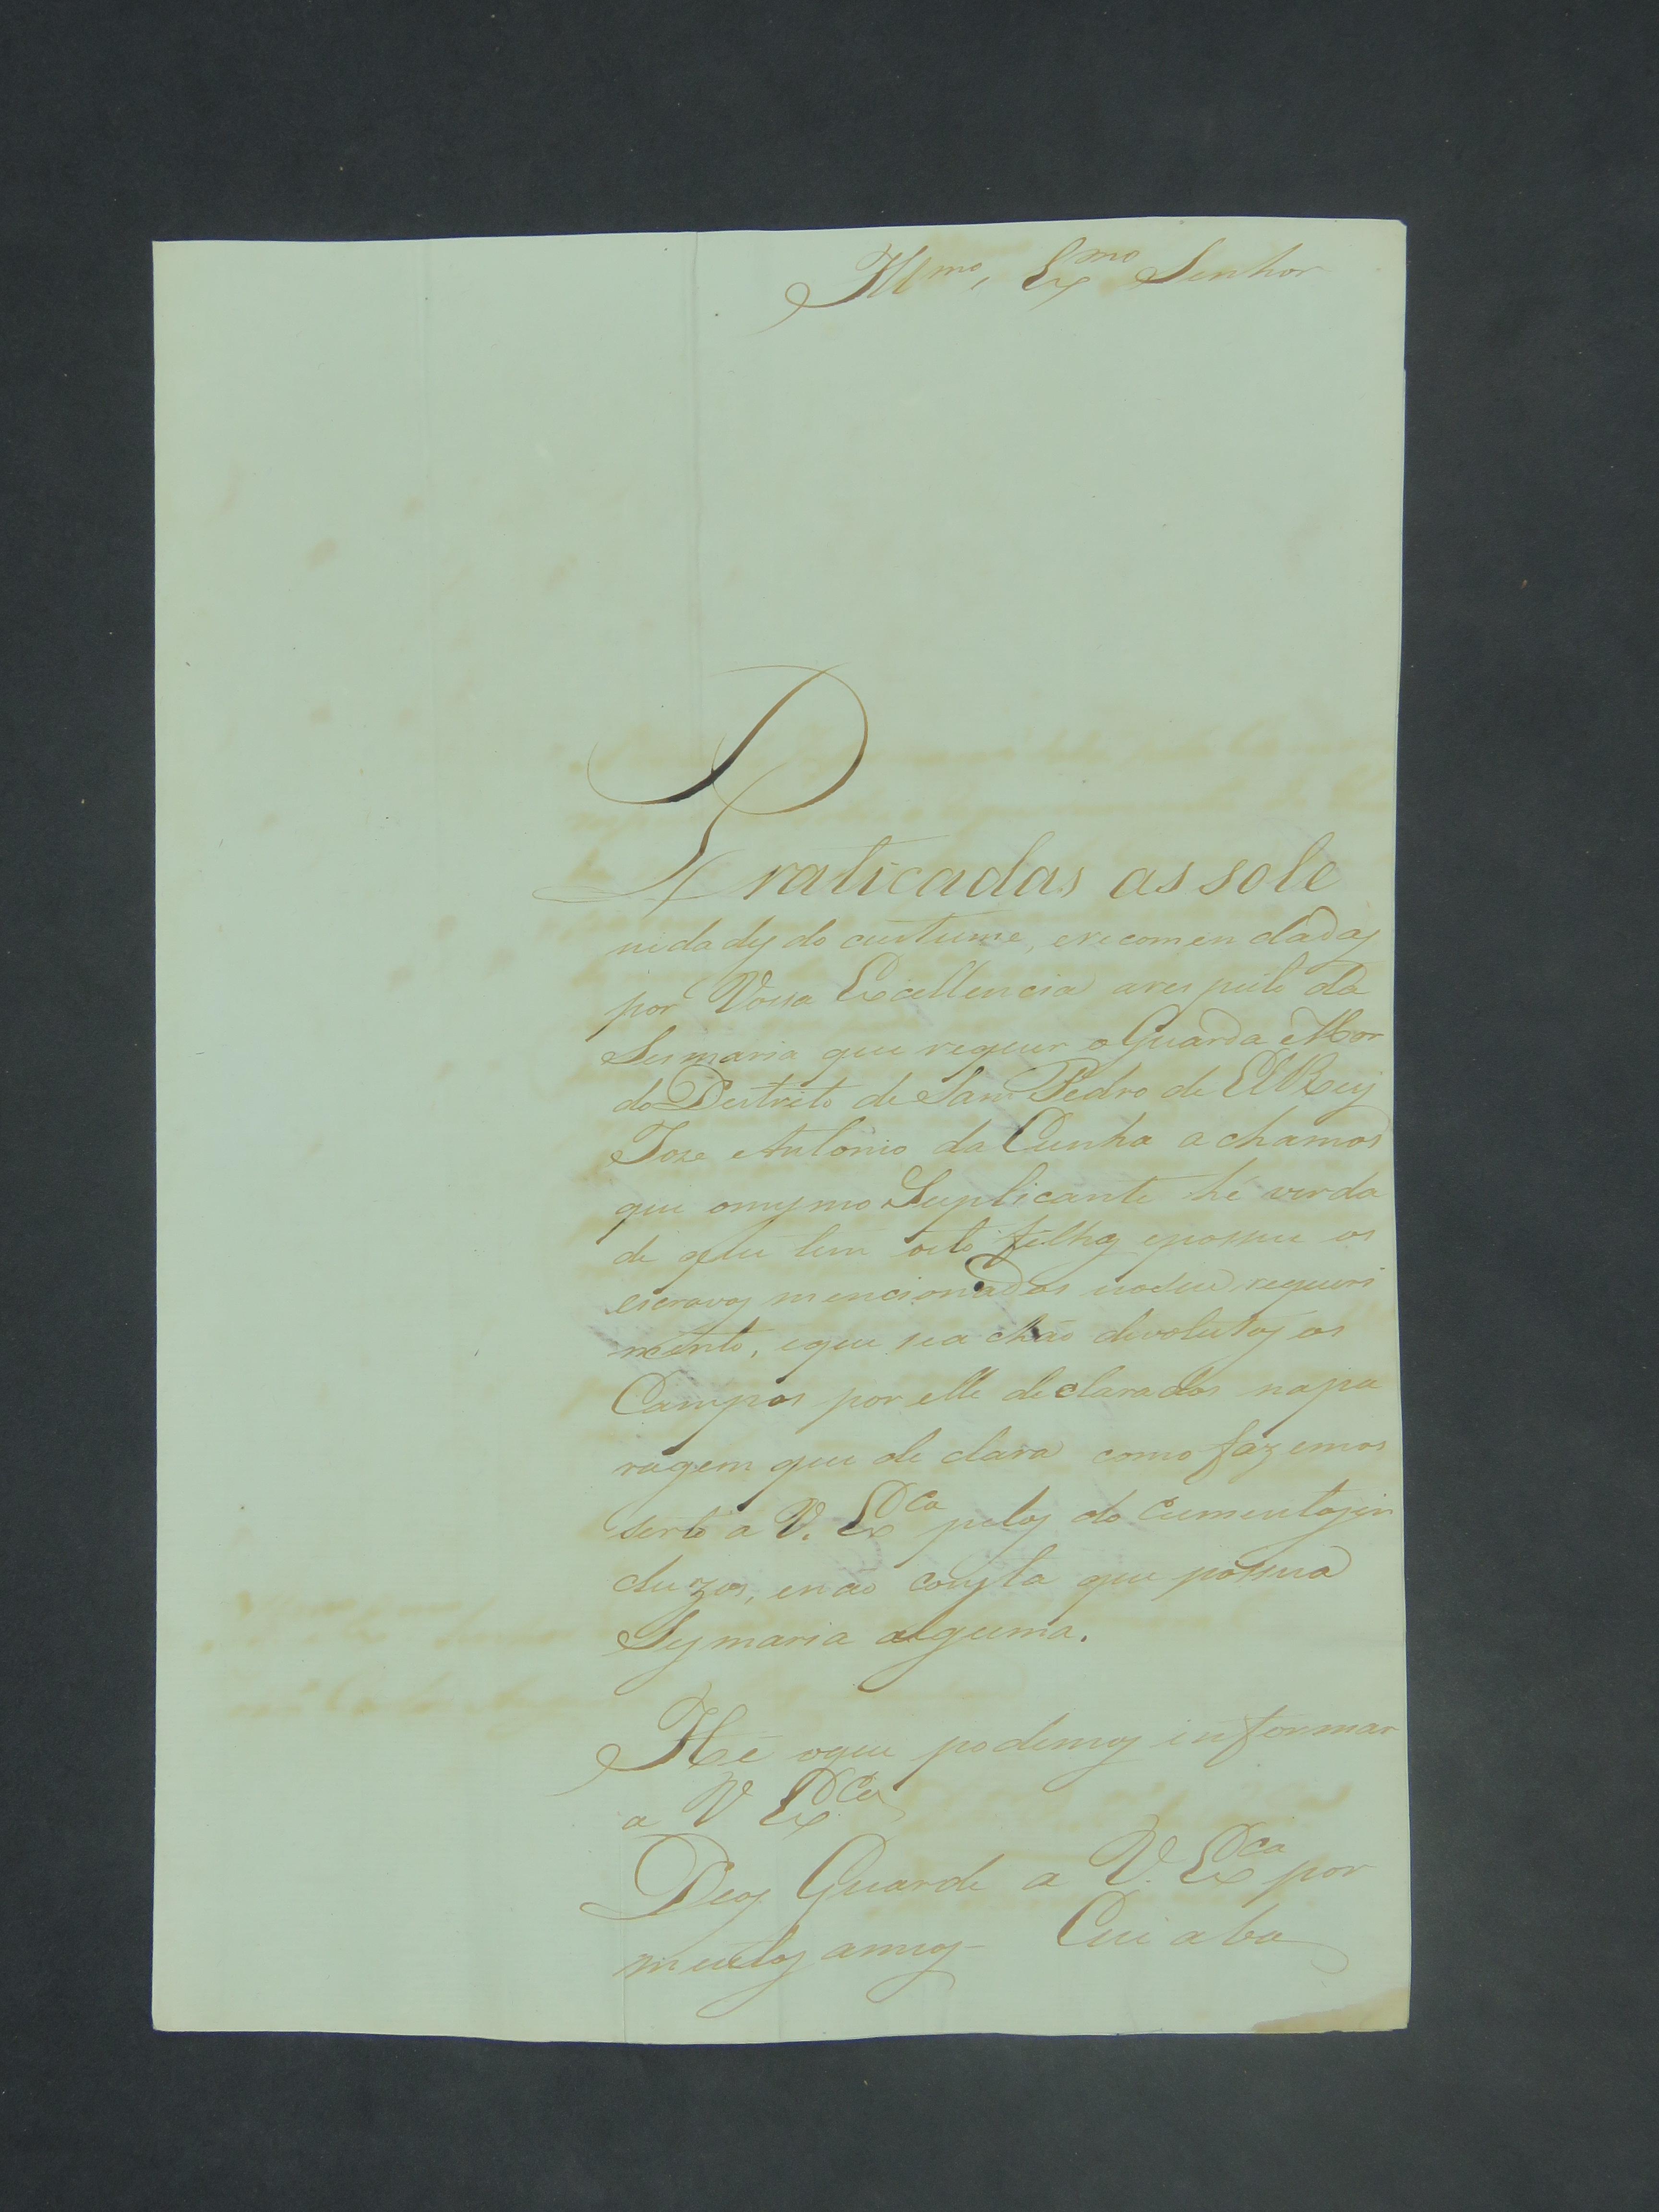 Illmo, Exmo Senhor
Praticadas as sole
nidades do custume, erecomendadas
por Vossa Excellencia arespeito da
Sesmaria que requer o Guarda Mor
do Destrito de Sam Pedro de ElRey
Joze Antonio da Cunha achamos
que omesmo Suplicante hé verda
de que tem oito filhos epossue os
escravos mencionados noseu requeri
mento, eque sea chão devolutos os
Campos por elle declarados napa
ragem que declara como fazemos
serto a V. Exca pelos documentosin
cluzos, enão consta que possua
Sesmaria alguma.
Hé oque podemos informar
a V Exca
Deos Guarde a V. Exca por
muitos annos - Cuiaba